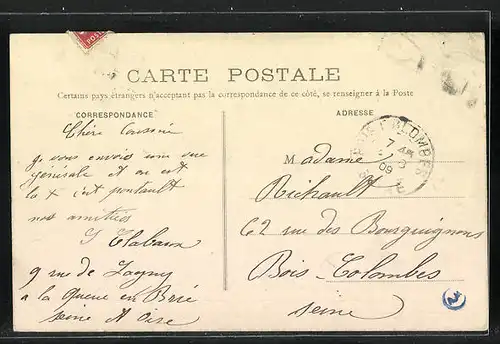 CARTE POSTALE
Certains pays étrangers n'acceptant pas la correspondance de ce côté, se renseigner à la Poste
CORRESPONDANCE
ADRESSE
Chère Cousine
je vous envoie une vue
générale et ou est
la x c'est pontault
nos amitiés
Clabaux
9 rue de Lagny
a la Queue en Brie
seine et Oise
Madame
Richault
62 rue des Bourguignons
Bois-Colombes
seine